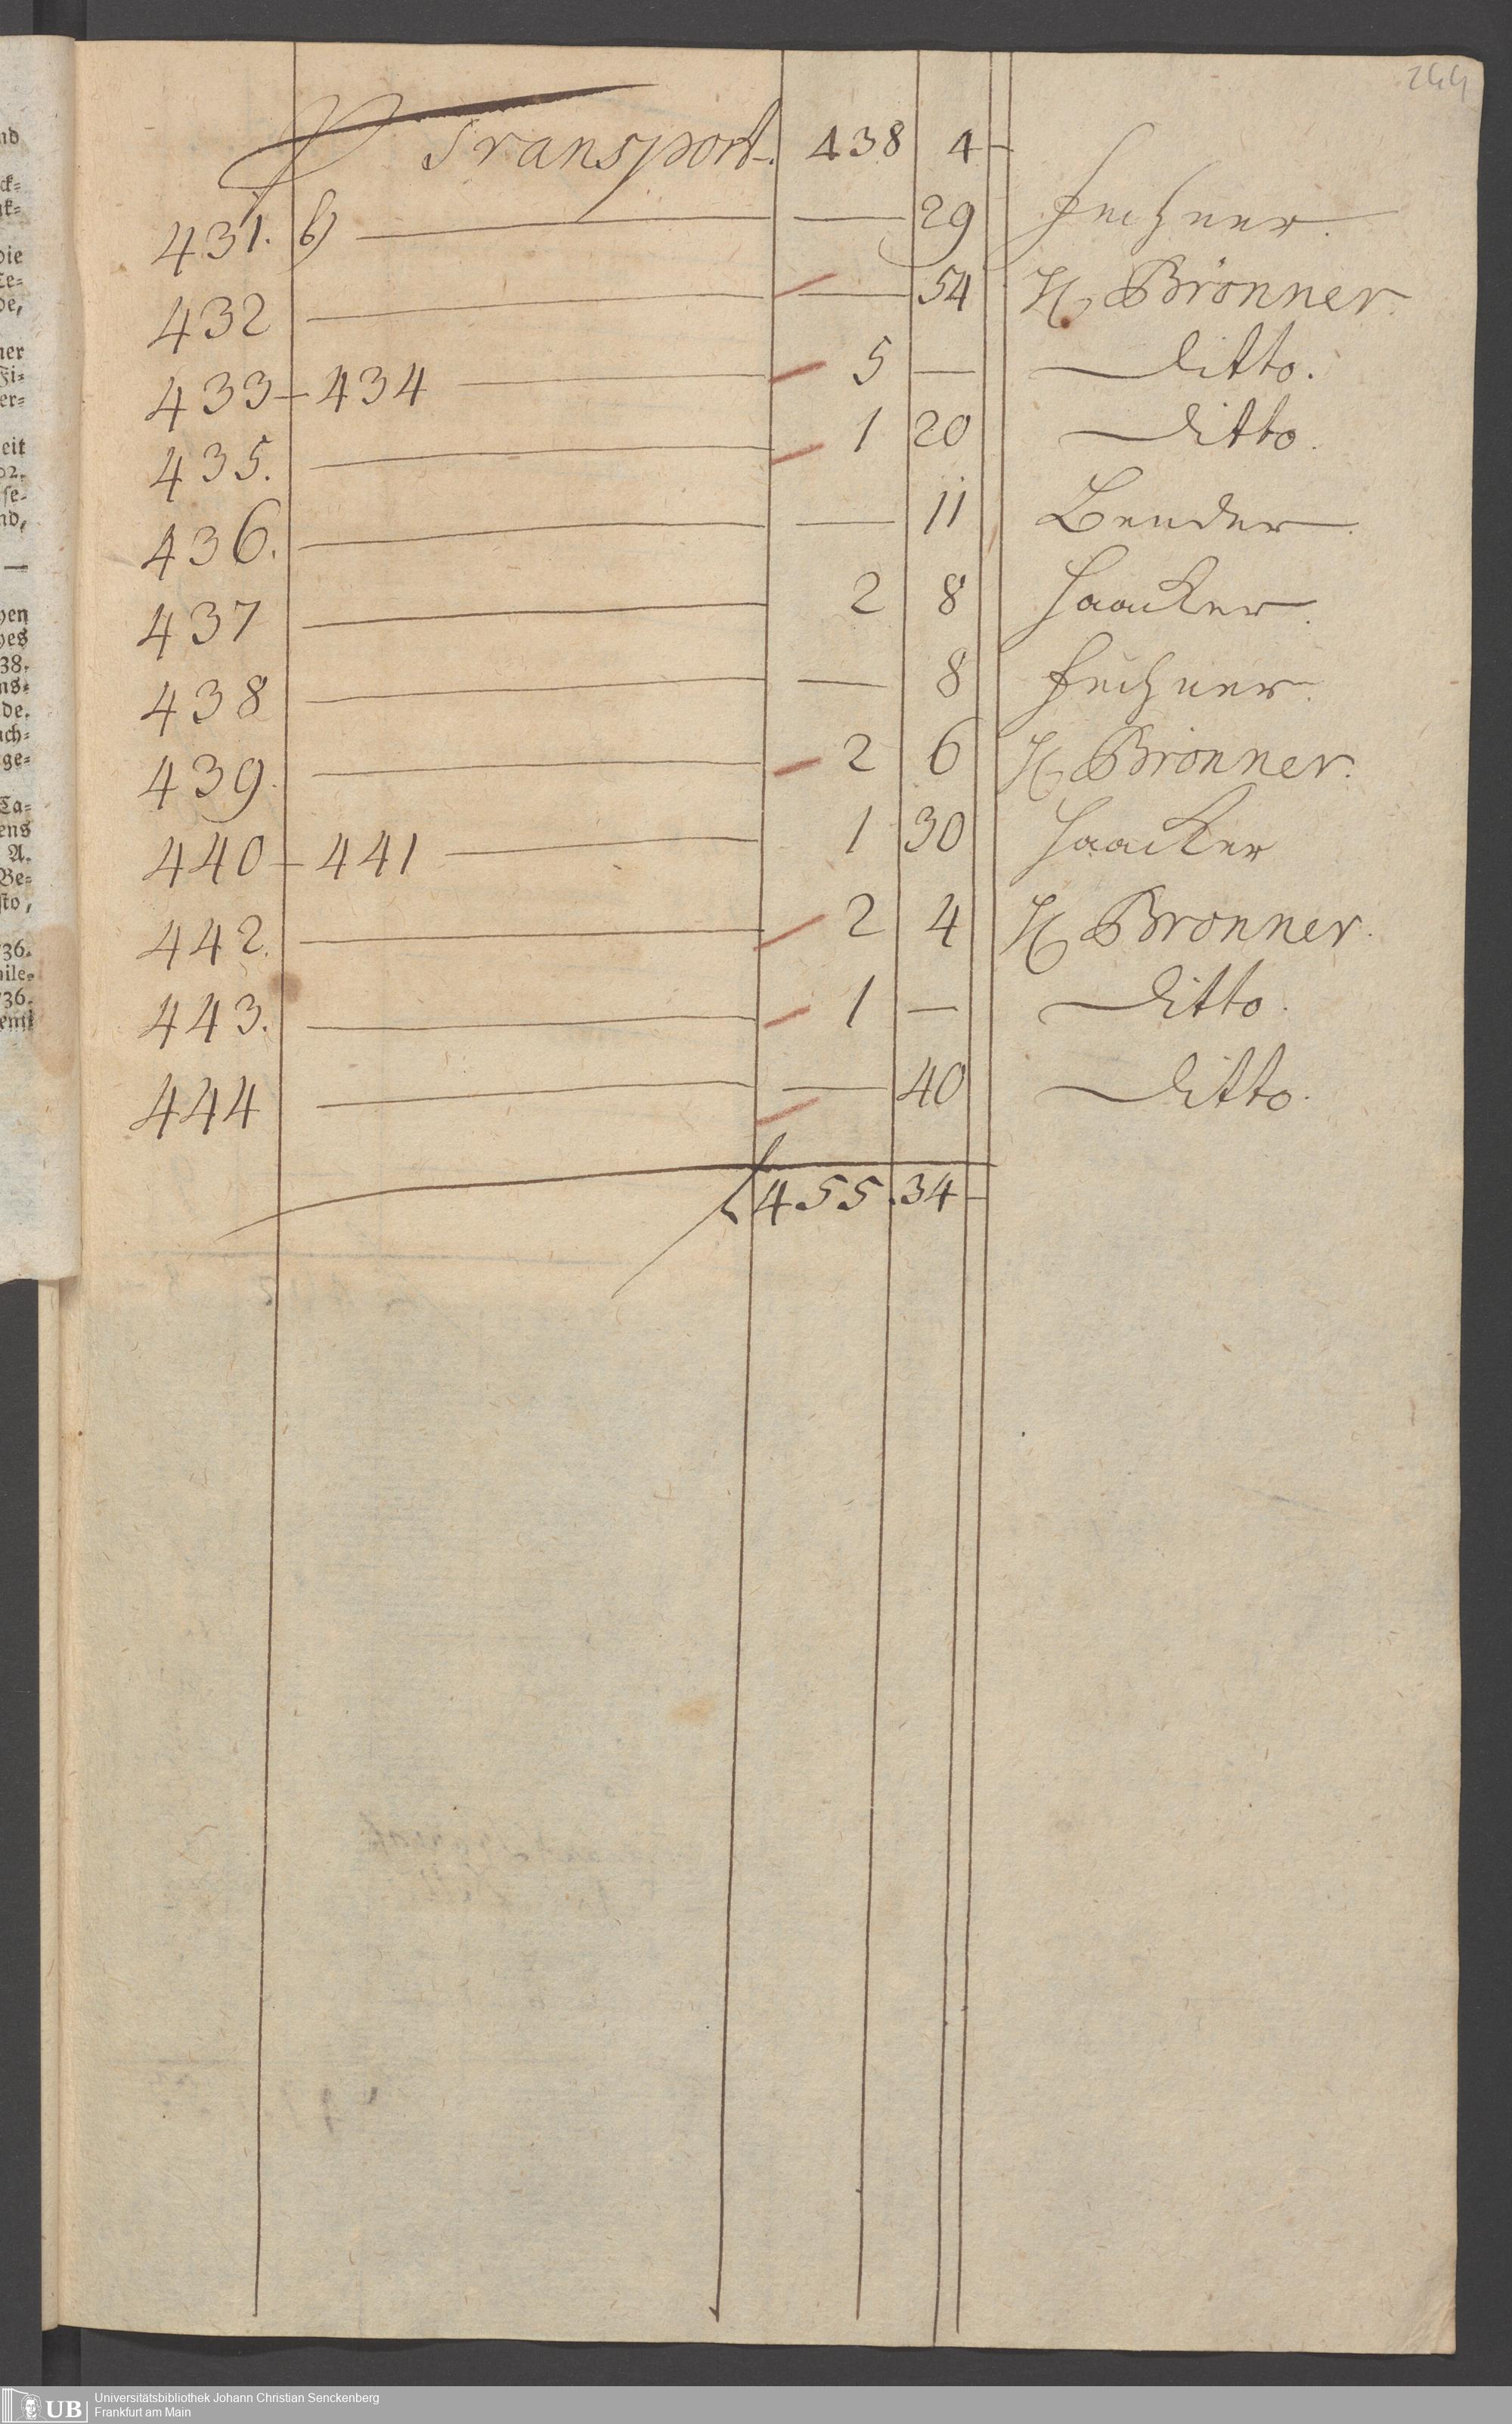 244
Transport. 438 4 -
431. b) — — 29 Fechner.
432 — — 54 H. Brönner.
433 - 434 — 5 — Ditto.
435. — 1 20 Ditto.
436. — — 11 Bender.
437 — 2 8 Haacker.
438 — — 8 Fechner.
439. — 2 6 H. Brönner.
440 - 441 — 1 30 Haacker
442. — 2 4 H. Bronner.
443. — 1 — Ditto.
444 — — 40 Ditto.
f 455. 34 -
nd
ck=
die
Te=
de,
ner
Fi=
er=
eit
02.
se-
nd,
—
hen
hes
38.
ns=
de.
ach=
ge=
Ca=
ens
A.
Be=
sto,
36.
36.
UB Universitätsbibliothek Johann Christian Senckenberg
Frankfurt am Main